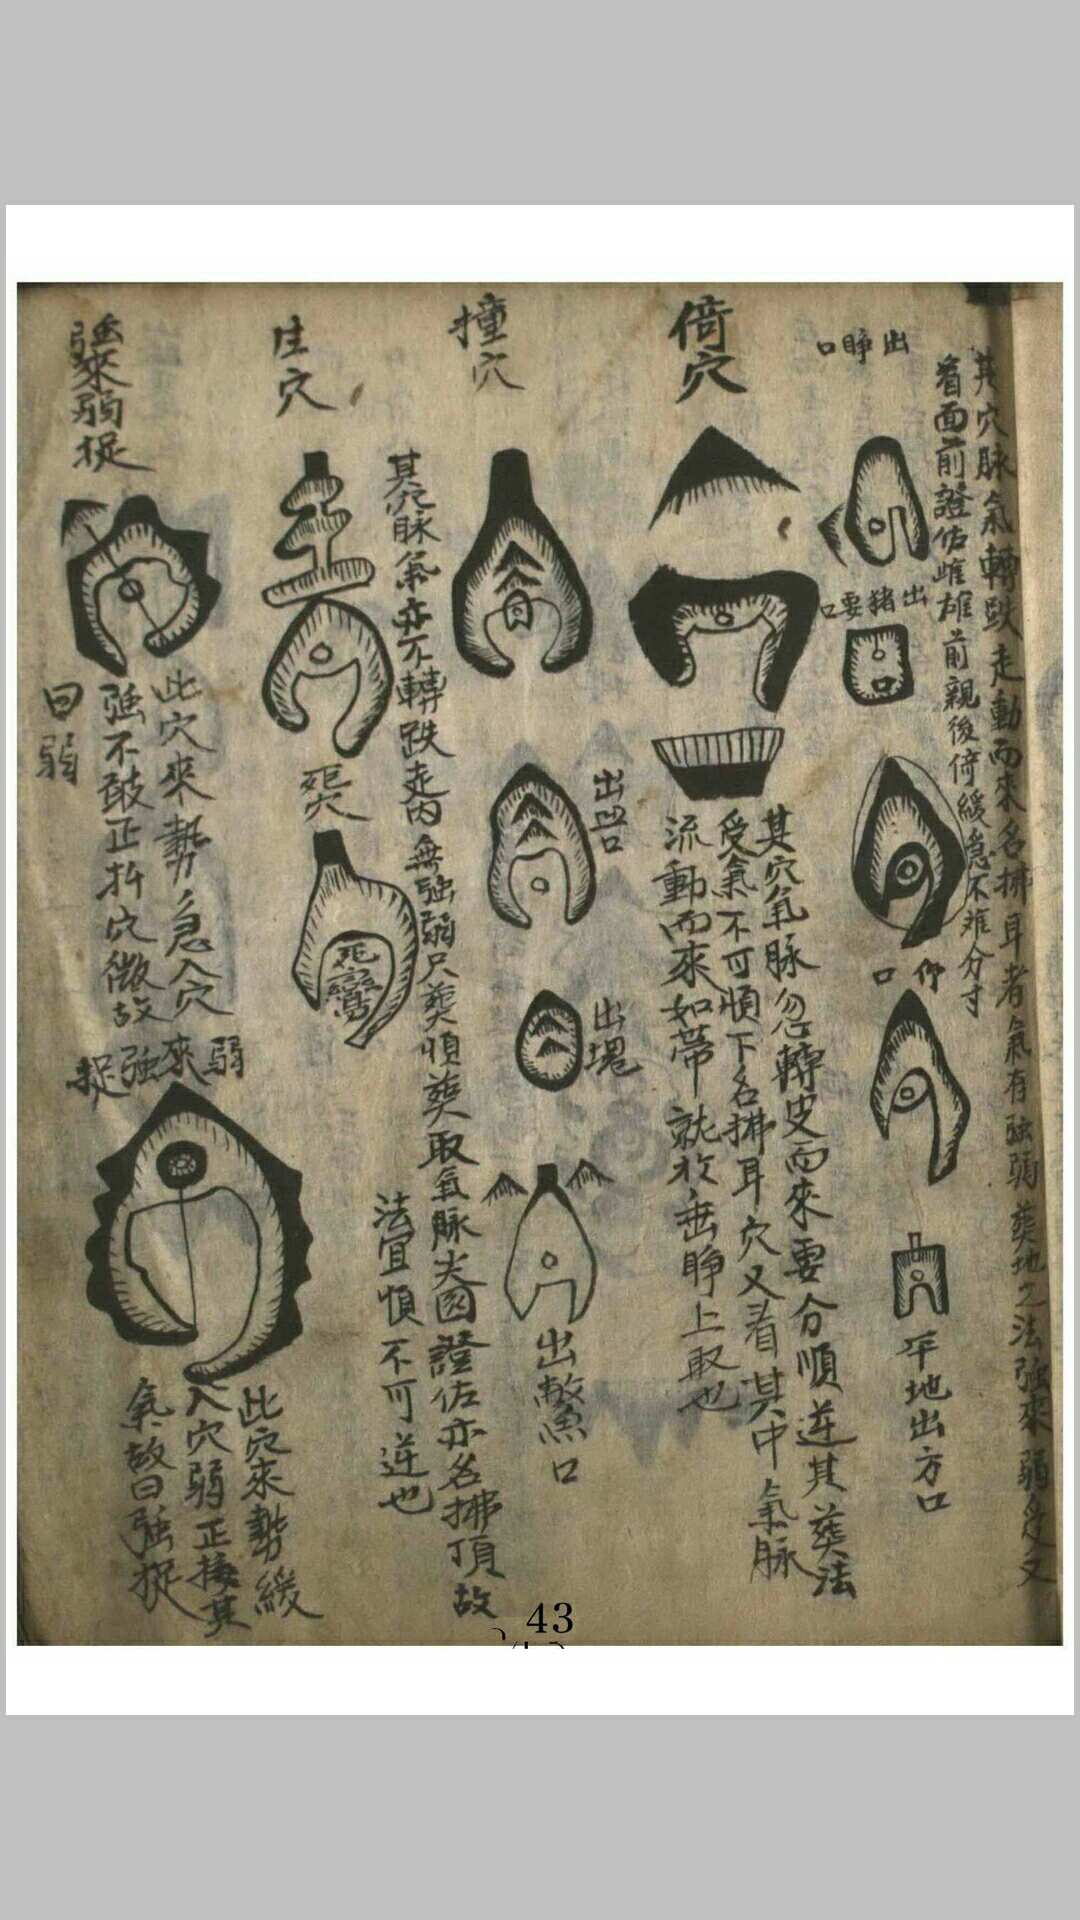 其穴脉氣轉跌走動而來名拂耳者氣有強弱葬地之法強來弱受又
看面前證佐雌雄前親後倚緩急不难分寸
出睁口
出豬要口
仰口
平地出方口
倚穴
其穴氣脉忽轉皮而來要分順逆其葬法
受氣不可順下名拂耳穴又看其中氣脉
流動而來如帶就於垂睁上取也
撞穴
出凹口
出塊
出鱉口
其穴脉氣亦不轉跌走內無強弱只葬順葬取氣脉尖圓證佐亦名拂頂故
法宜順不可逆也
生穴
死穴
死鸞
強來弱捉
此穴來勢急入穴
強不敢正扦穴微故
曰弱
弱來強捉
此穴來勢緩
入穴弱正接其
氣故曰強捉
43